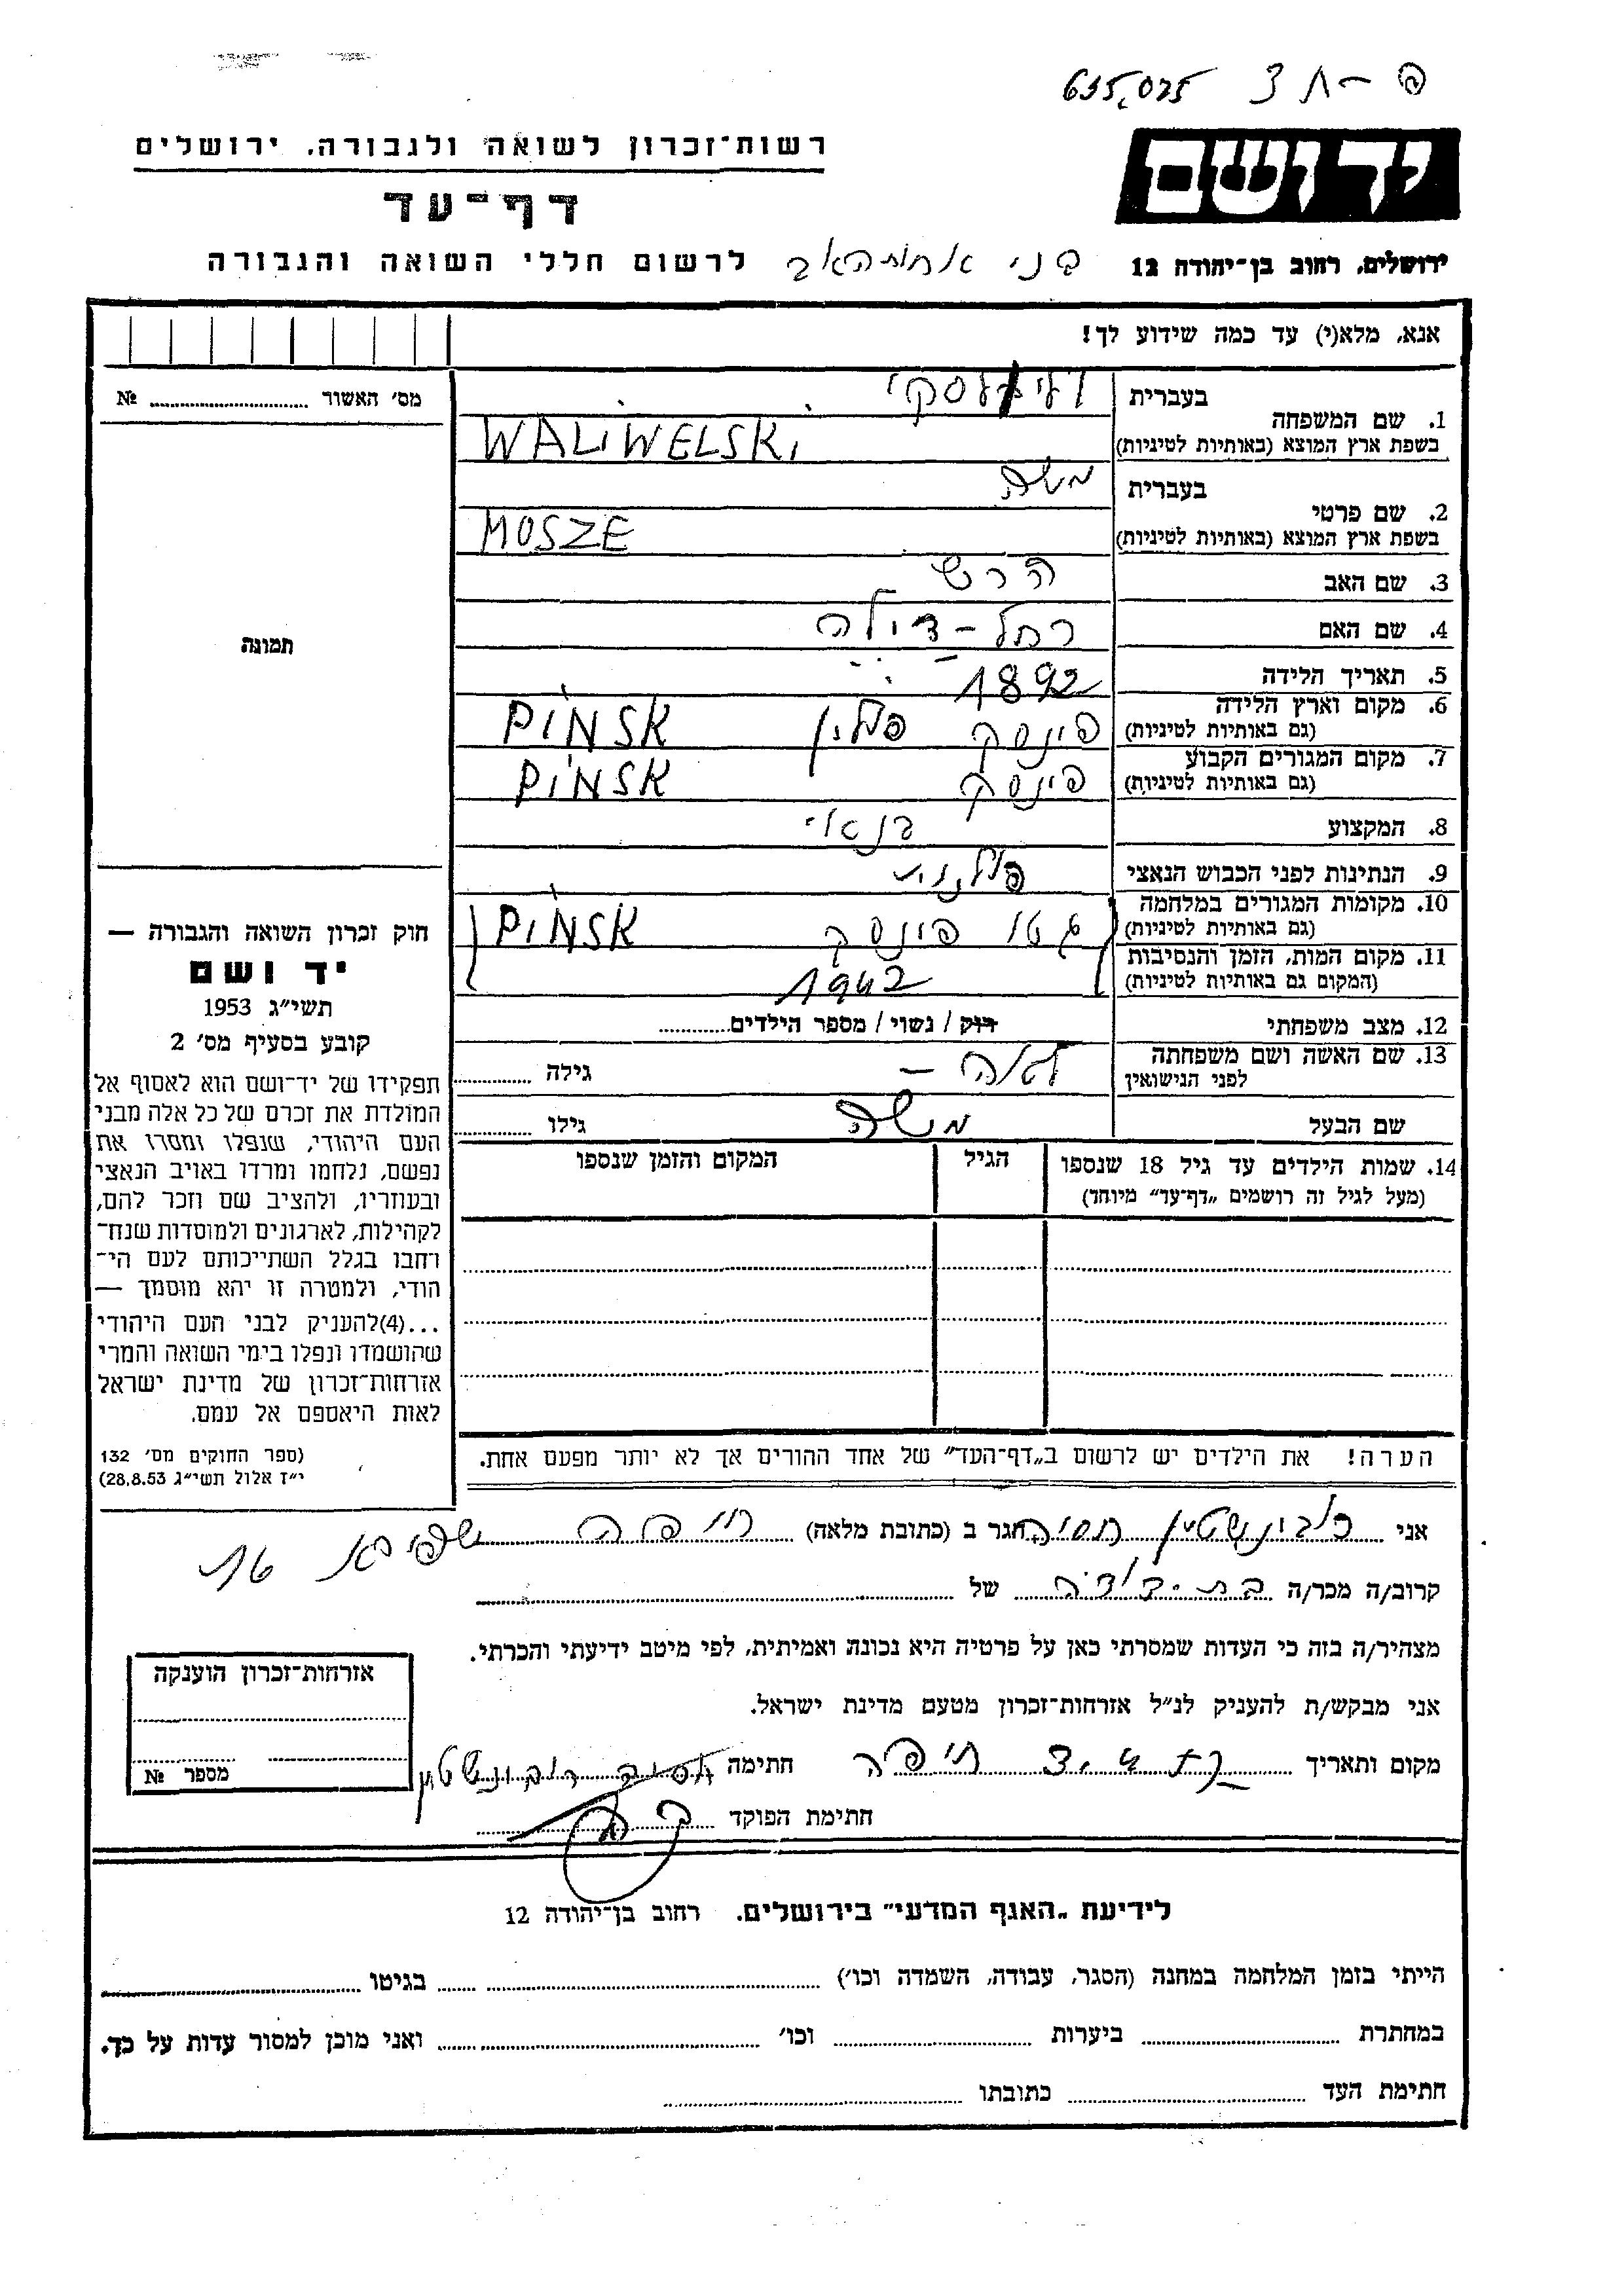 635,025
רשות־זכרון לשואה ולגבורה, ירושלים
יד ושם
דף־עד
ירושלים, רחוב בן־יהודה 12
לרשום חללי השואה והגבורה
אנא, מלא(י) עד כמה שידוע לך!
מס׳ האשור № ........
1. שם המשפחה
בעברית
בשפת ארץ המוצא (באותיות לטיניות) WALIWELSKI
2. שם פרטי
בעברית משה
בשפת ארץ המוצא (באותיות לטיניות) MOSZE
3. שם האב הרש
4. שם האם רחל-
5. תאריך הלידה 1892
6. מקום וארץ הלידה (גם באותיות לטיניות) פינסק פולין PINSK
7. מקום המגורים הקבוע (גם באותיות לטיניות) פינסק PINSK
8. המקצוע בנאי
9. הנתינות לפני הכבוש הנאצי פולנית
10. מקומות המגורים במלחמה (גם באותיות לטיניות) גטו פינסק PINSK
11. מקום המות, הזמן והנסיבות (המקום גם באותיות לטיניות) 1942
12. מצב משפחתי רוק / נשוי / מספר הילדים........
13. שם האשה ושם משפחתה לפני הנישואין גילה ........
שם הבעל משה גילו ........
14. שמות הילדים עד גיל 18 שנספו
(מעל לגיל זה רושמים „דף־עד״ מיוחד)
הגיל
המקום והזמן שנספו
הערה! את הילדים יש לרשום ב„דף־העד״ של אחד ההורים אך לא יותר מפעם אחת.
תמונה
חוק זכרון השואה והגבורה —
יד ושם
תשי״ג 1953
קובע בסעיף מס׳ 2
תפקידו של יד־ושם הוא לאסוף אל
המולדת את זכרם של כל אלה מבני
העם היהודי, שנפלו ומסרו את
נפשם, נלחמו ומרדו באויב הנאצי
ובעוזריו, ולהציב שם וזכר להם,
לקהילות, לארגונים ולמוסדות שנח־
רחבו בגלל השתייכותם לעם הי־
הודי, ולמטרה זו יהא מוסמך —
...(4)להעניק לבני העם היהודי
שהושמדו ונפלו בימי השואה והמרי
אזרחות־זכרון של מדינת ישראל
לאות היאספם אל עמם.
(ספר החוקים מס׳ 132
י״ז אלול תשי״ג 28.8.53)
אני רובינשטיין חסיה הגר ב (כתובת מלאה) חיפה
קרוב/ה מכר/ה בת-דודה של ........
מצהיר/ה בזה כי העדות שמסרתי כאן על פרטיה היא נכונה ואמיתית, לפי מיטב ידיעתי והכרתי.
אני מבקש/ת להעניק לנ״ל אזרחות־זכרון מטעם מדינת ישראל.
מקום ותאריך חיפה חתימה חסיה רובינשטיין
חתימת הפוקד
אזרחות־זכרון הוענקה
מספר №
לידיעת „האגף המדעי״ בירושלים. רחוב בן־יהודה 12
הייתי בזמן המלחמה במחנה (הסגר, עבודה, השמדה וכו׳) ........ בגיטו ........
במחתרת ........ ביערות ........ וכו׳ ........ ואני מוכן למסור עדות על כך.
חתימת העד ........ כתובתו ........